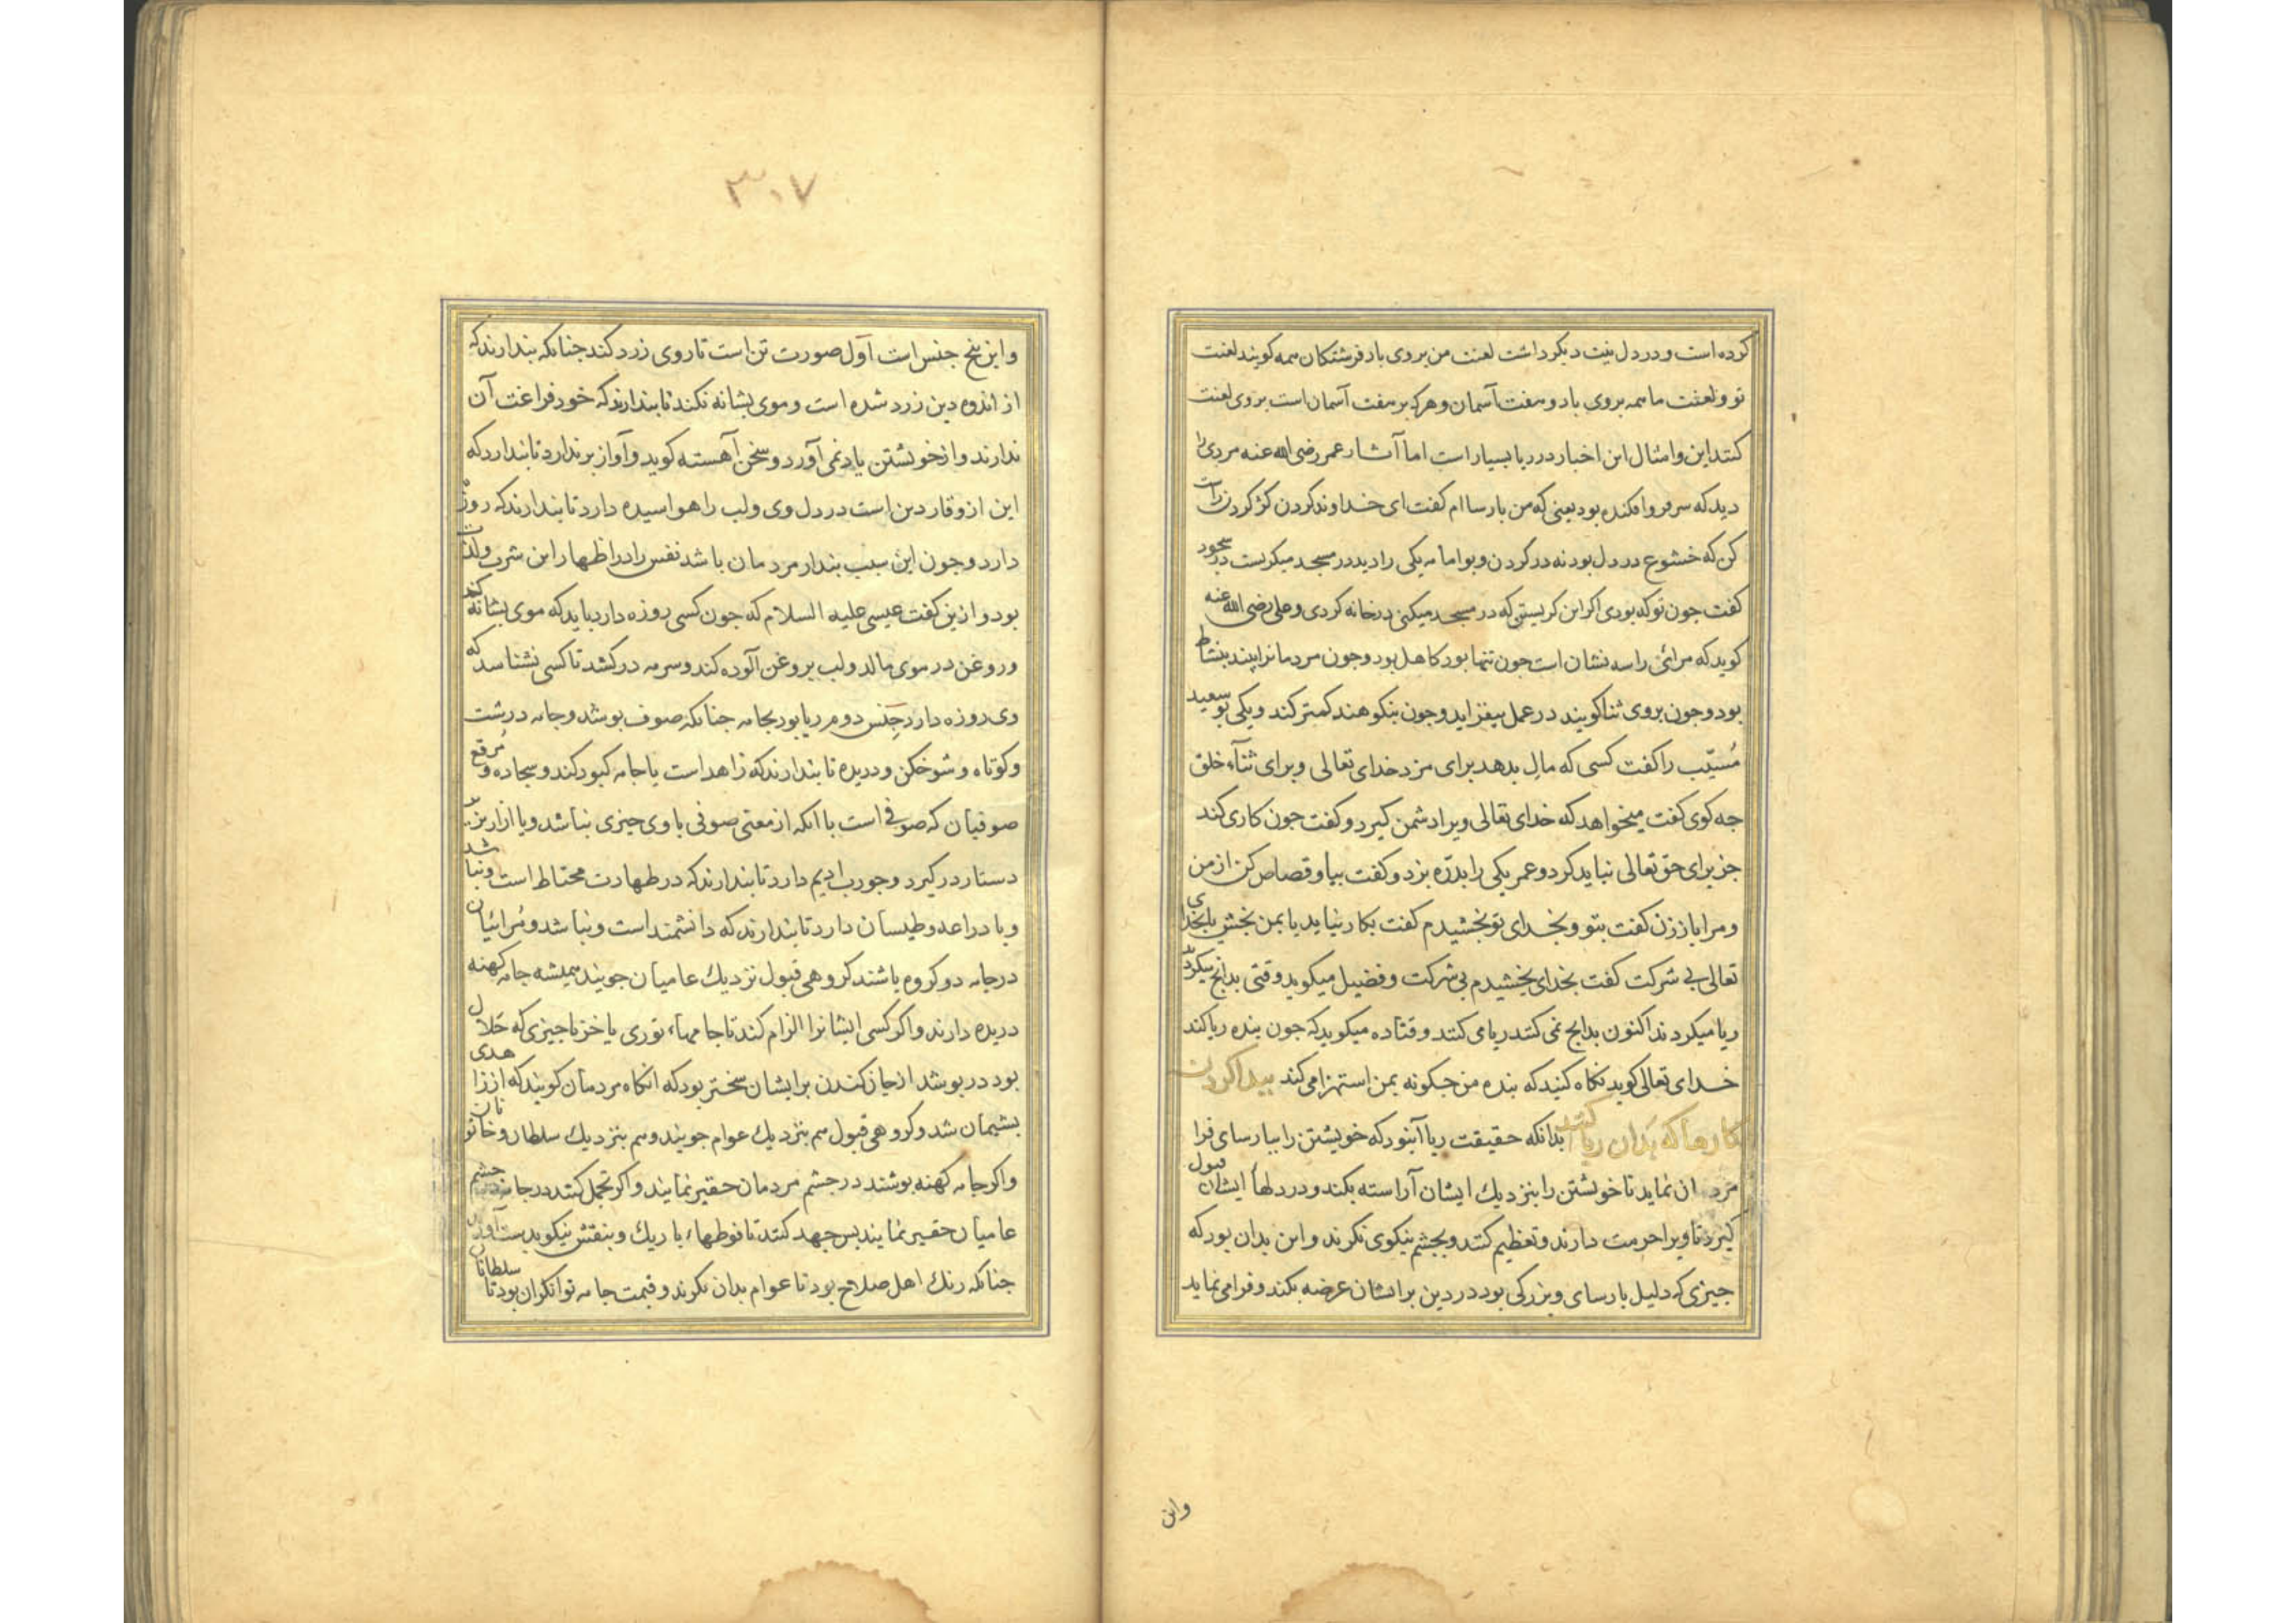 کرده است و در دل نیت دیکر داشت لعنت من بروی باد فرشتکان همه کویند لعنت
تو و لعنت ما همه بروی باد و هفت آسمان و هرکه بر هفت آسمان است بروی لعنت
کنند این و امثال این اخبار در ریا بسیار است اما آثار عمر رضی الله عنه مردی را
دید که سر فروافکنده بود یعنی که من بارساام کفت ای خداوند کردن کژ کردن راست
کن که خشوع در دل بود نه در کردن و بوامامه یکی را دید در مسجد میکریست در سجود
کفت چون تو که بودی اکر این کریستن که در مسجد میکنی در خانه کردی و علی رضی الله عنه
کوید که مرائی را سه نشان است جون تنها بود کاهل بود و جون مردمانرا بیند بنشاط
بود و جون بروی ثنا کویند در عمل بیفزاید و جون بنکوهند کمتر کند و یکی بو سعید
مُسیّب را کفت کسی که مال بدهد برای مزد خدای تعالی و برای ثنآء خلق
جه کوی کفت میخواهد که خدای تعالی ویرا دشمن کیرد و کفت جون کاری کند
جز برای حق تعالی نباید کرد و عمر یکی را بدرّه بزد و کفت بیا و قصاص کن از من
و مرا باز زن کفت بتو و بخدای تو بخشیدم کفت بکار نیاید یا بمن بخش یا بخدای
تعالی بی شرکت کفت بخدای بخشیدم بی شرکت و فضیل میکوید وقتی بدانج میکردند
ریا میکردند اکنون بدانج نمی کنند ریا می کنند و قتاده میکوید که جون بنده ریا کند
خدای تعالی کوید نکاه کنید که بنده من جکونه بمن استهزا می کند بیدا کردن
کارها که بدان ریا کنند بدانکه حقیقت ریا آنبود که خویشتن را ببارسای فرا
مردمان نماید تا خویشتن را بنزدیك ایشان آراسته بکند و در دلهآ ایشان قبول
کیرد تا ویرا حرمت دارند و تعظیم کنند و بجشم نیکوی نکرند و این بدان بود که
جیزی که دلیل بارسای و بزرکی بود در دین بر ایشان عرضه بکند و فرا می نماید
واین
۳۰۷
واین بنج جنس است اوّل صورت تن است تا روی زرد کند جنانکه بندارند که
از اندوه دین زرد شده است و موی بشانه نکند تا بندارند که خود فراغت آن
ندارند و از خویشتن یاد نمی آورد و سخن آهسته کوید و آواز برندارد تا بندارد که
این از وقار دین است در دل وی و لب را هواسیده دارد تا بندارند که روزه
دارد و جون این سبب بندار مردمان باشد نفس را در اظهار این شرب و لذت
بود و ازین کفت عیسی علیه السلام که جون کسی روزه دارد باید که موی بشانه کند
و روغن در موی مالد و لب بروغن آلوده کند و سرمه درکشد تا کسی نشناسد که
وی روزه دارد جنس دوم ریا بود بجامه جنانکه صوف بوشد و جامه درشت
و کوتاه و شوخکن و دریده تا بندارند که زاهد است یا جامه کبود کند و سجاده و مُرقع
صوفیان که صوفی است با انکه از معنی صوفی با وی جیزی نباشد و یا ازار بزبر
دستار درکیرد و جورب ادیم دارد تا بندارند که در طهارت محتاط است و نباشد
و یا دراعه و طیلسان دارد تا بندارند که دانشمند است و نباشد و مُرائیان
در جامه دو کروه باشند کروهی قبول نزدیك عامیان جویند همیشه جامه کهنه
دریده دارند و اکر کسی ایشانرا الزام کند تا جامهآء توری یا خز یا جیزی که حَلال
بود در بوشد از جان کندن بر ایشان سختر بود که انکاه مردمان کویند که از زاهدی
بشیمان شد و کروهی قبول هم بنزدیك عوام جویند و هم بنزدیك سلطان و خاتونان
و اکر جامه کهنه بوشند در جشم مردمان حقیر نمایند و اکر تجمل کنند در جشم
عامیان حقیر نمایند بس جهد کنند تا فوطهاء باریك و بنقش نیکو بدست آورن
جنانکه رنك اهل صلاح بود تا عوام بدان نکرند و قیمت جامه توانکران بود تا سلطانان